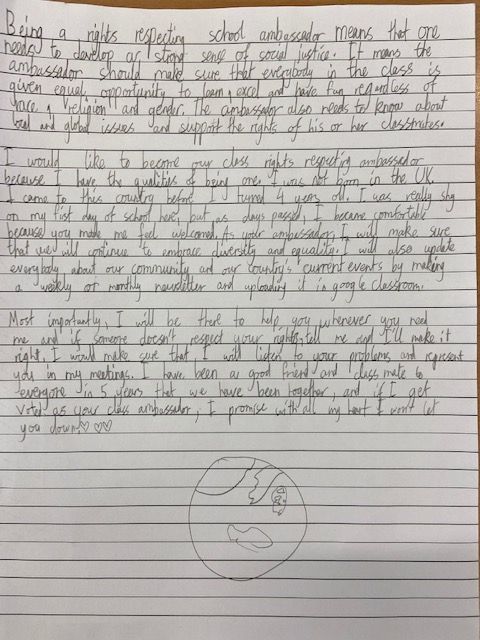 Being a rights respecting school ambassador means that one
needs to develop a strong sense of social justice. It means the
ambassador should make sure that everybody in the class is
given equal opportunity to learn, excel and have fun regardless of
race, religion and gender. The ambassador also needs to know about
local and global issues and support the rights of his or her classmates.
I would like to become our class rights respecting ambassador
because I have the qualities of being one. I was not born in the UK.
I came to this country before I turned 4 years old. I was really shy
on my first day of school here, but as days passed, I became comfortable
because you made me feel welcomed. As your ambassador, I will make sure
that we will continue to embrace diversity and equality. I will also update
everybody about our community and our country's current events by making
a weekly or monthly newsletter and uploading it in google classroom.
Most importantly, I will be there to help you whenever you need
me and if someone doesn't respect your rights, tell me and I'll make it
right. I would make sure that I will listen to your problems and represent
you in my meetings. I have been a good friend and classmate to
everyone in 5 years that we have been together, and if I get
voted as your class ambassador, I promise with all my heart I won't let
you down♡♡♡